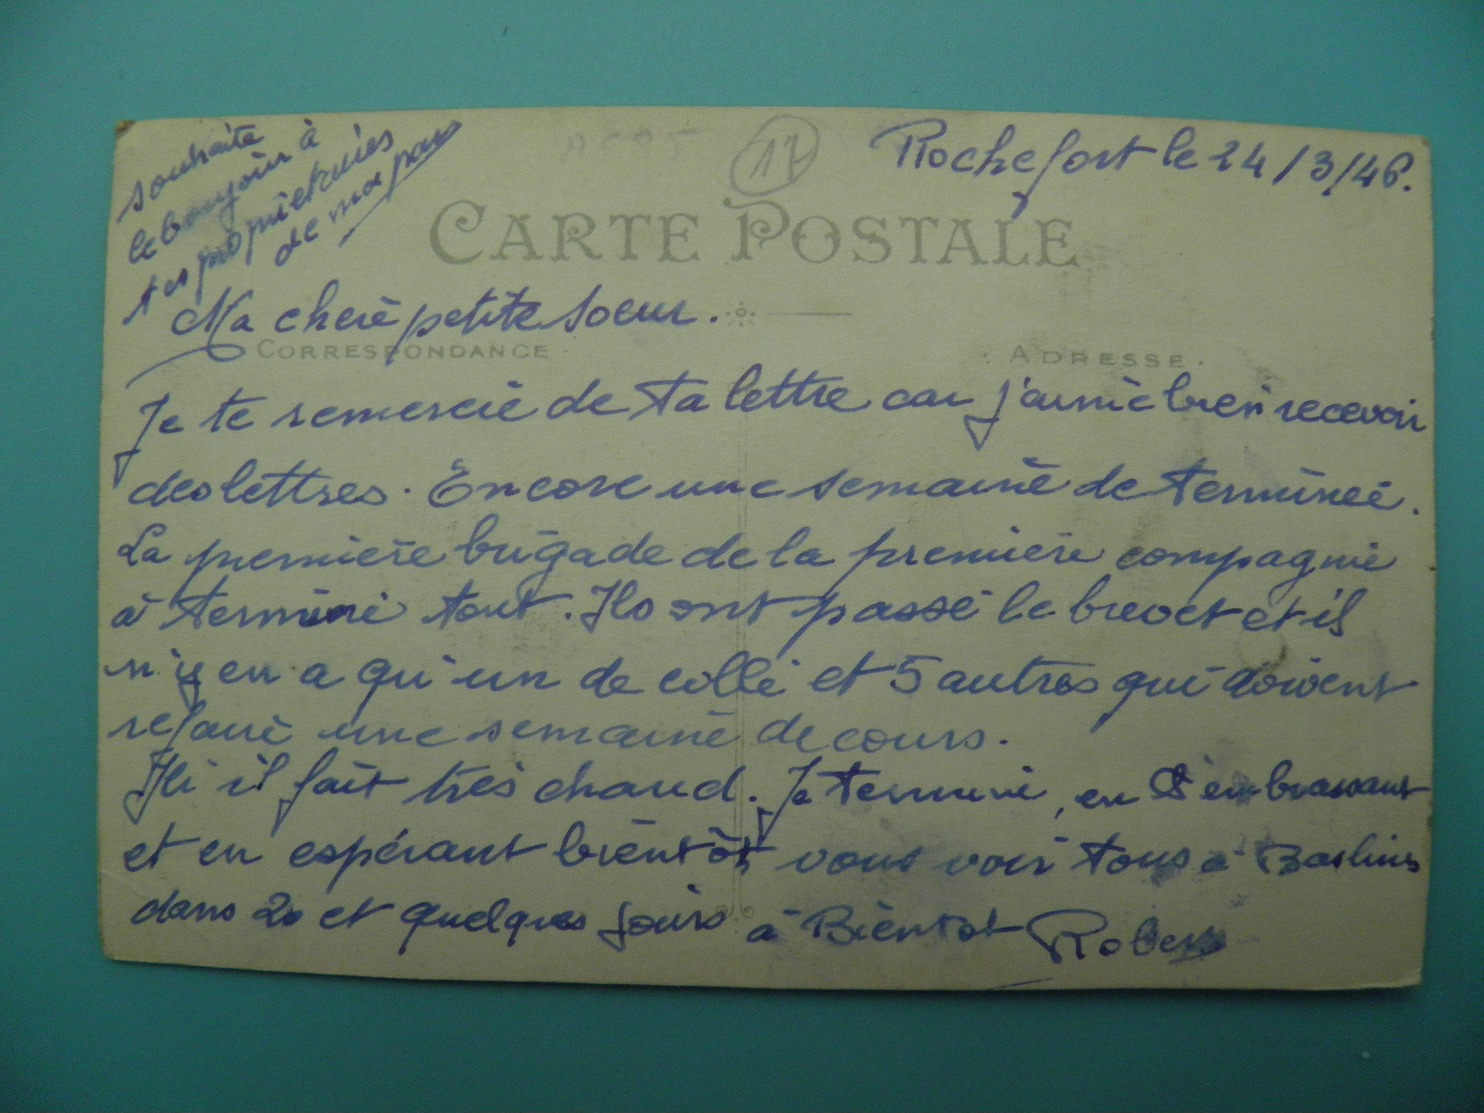 souhaite
le bonjour à
tes propriétaires
de ma part
17
Rochefort le 24/3/46.
CARTE POSTALE
Ma chère petite soeur.
CORRESPONDANCE
ADRESSE.
Je te remercie de ta lettre car j'aime bien recevoir
des lettres. Encore une semaine de terminée.
La première brigade de la première compagnie
à terminé tout. Ils ont passé le brevet et il
n'y en a qu'un de collé et 5 autres qui doivent
refaire une semaine de cours.
Ici il fait très chaud. Je termine, en t'embrassant
et en espérant bientôt vous voir tous à
dans 20 et quelques jours à Bientot Robert